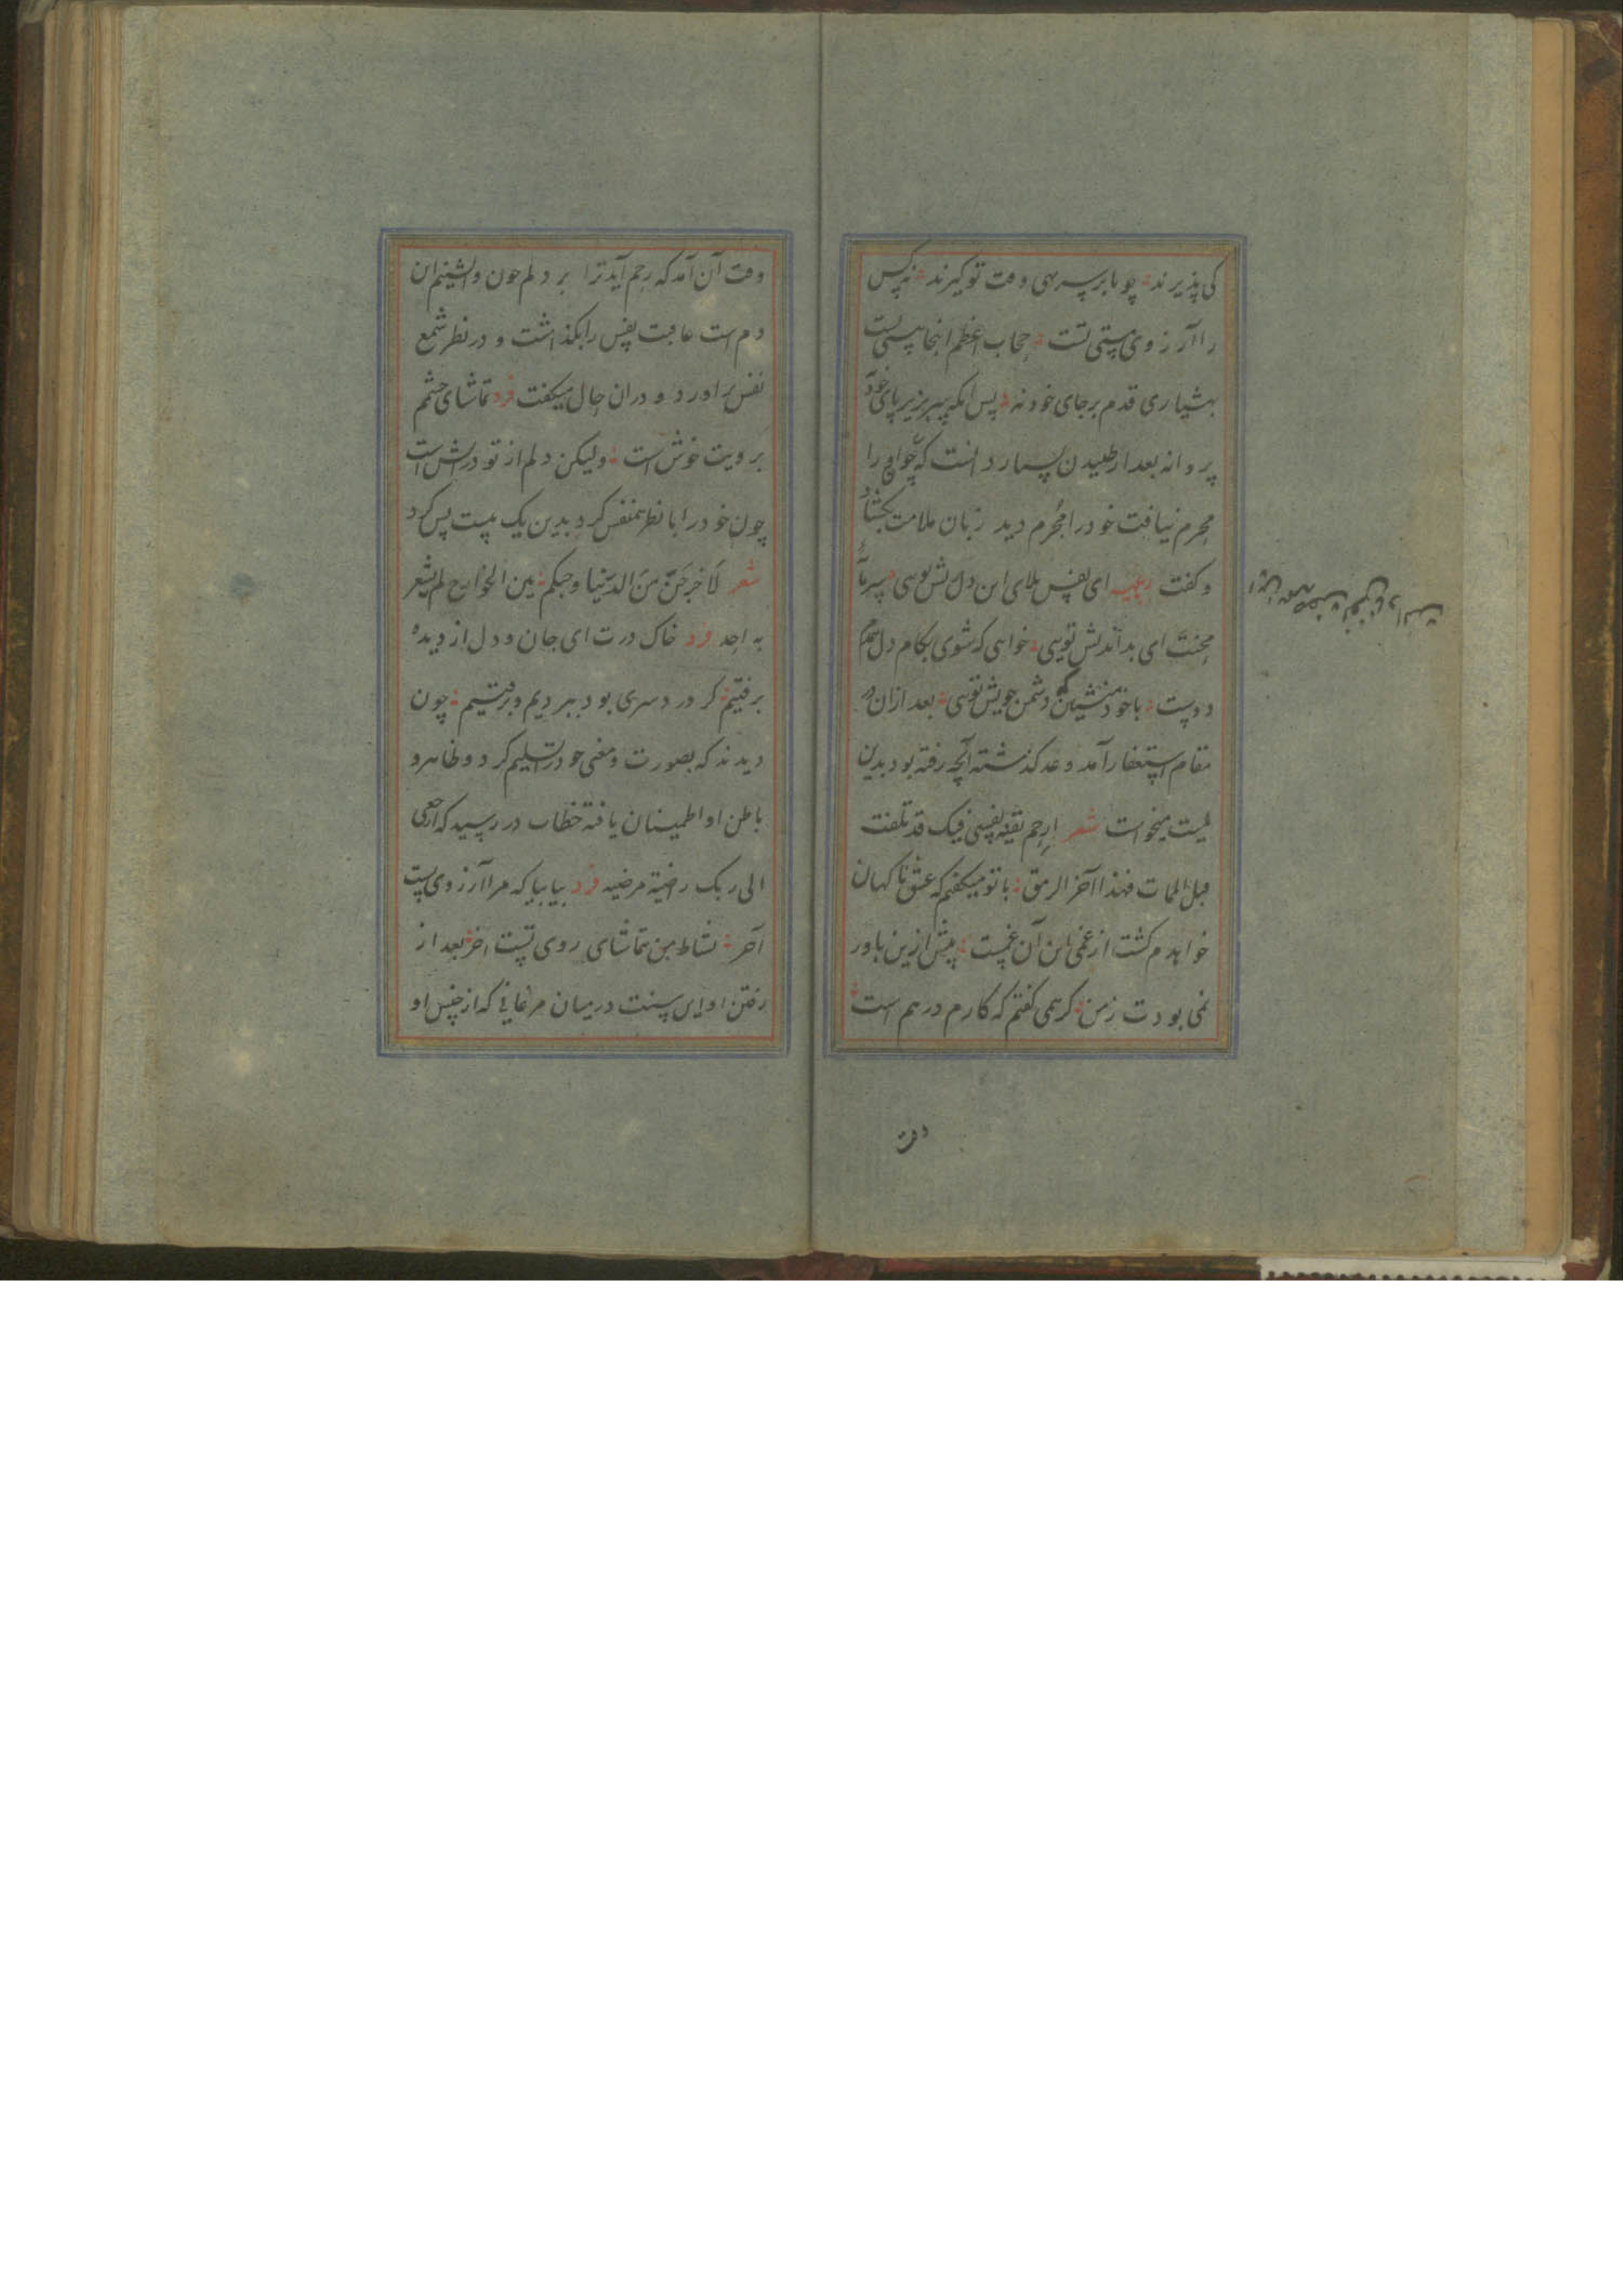 کی پذیرند چو پا بر سر نهی وقت تو گیرند نه کس
را آرزوی هستی تست حجاب اعظم اینجا هستی تست
بهشیاری قدم بر جای خود نه پس انکه سر بزیر پای خود
پروانه بعد از طپیدن بسیار دانست که چو او را
محرم نیافت خود را مجرم دید زبان ملامت بکشاد
و کفت رباعیه ای نفس بلای این دل ریش تویی سرمایه
محنت ای بداندیش تویی خواهی که شوی بکام دل همدم
دوست با خود منشین که دشمن خویش تویی بعد ازان در
مقام استغفار آمد و عذر کذشته آنچه رفته بود بدین
بیت میخواست شعر ارحم بقیة نفسی فیک قد تلفت
قبل الممات فهذا آخر الرمق با تو میکفتم که عشق ناکهان
خواهدم کشت از غمی کین آن غمست پیش ازین باور
نمی بودت ز من کرهمی کفتم که کارم درهم است
وقت
وقت آن آمد که رحم آید ترا بر دلم چون واپسینم ان
دم است عاقبت نفس را بکذاشت و در نظر شمع
نفس براورد و دران حال میکفت فرد تماشای چشمم
برویت خوش است ولیکن دلم از تو در آتش است
چون خود را با نظر همنفس کرد بدین یک بیت پس کرد
شعر لاخرجن من الدنیا و حبکم بین الجوانح لم یشعر
به احد فرد خاک درت ای جان و دل از دیده
برفتیم کر درد سری بود ببردیم و برفتیم چون
دیدند که بصورت و معنی خود را تسلیم کرد و ظاهر و
باطن او اطمینان یافته خطاب در رسید که ارجعی
الی ربک راضیة مرضیه فرد بیا بیا که مرا آرزوی تست
آخر نشاط من تماشای روی تست اخر بعد از
رفتن او این سنت در میان مرغانی که از جنس او